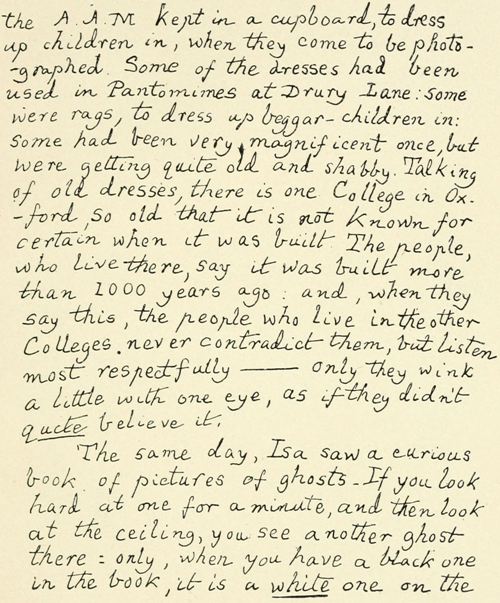 the A.A.M kept in a cupboard, to dress
up children in, when they come to be photo-
-graphed. Some of the dresses had been
used in Pantomimes at Drury Lane: some
were rags, to dress up beggar-children in:
some had been very magnificent once, but
were getting quite old and shabby. Talking
of old dresses, there is one College in Ox-
-ford, so old that it is not known for
certain when it was built. The people,
who live there, say it was built more
than 1000 years ago: and, when they
say this, the people who live in the other
Colleges never contradict them, but listen
most respectfully —— only they wink
a little with one eye, as if they didn't
quite believe it.
The same day, Isa saw a curious
book of pictures of ghosts. If you look
hard at one for a minute, and then look
at the ceiling, you see another ghost
there: only, when you have a black one
in the book, it is a white one on the